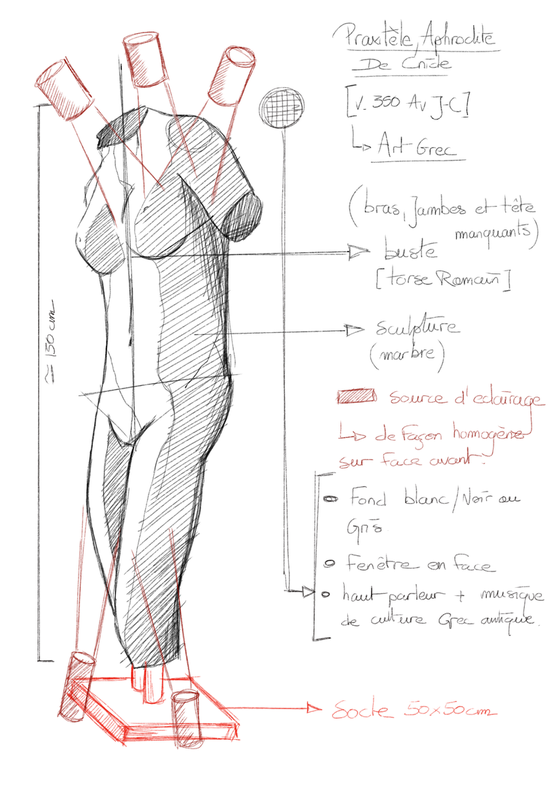 Praxitèle, Aphrodite
De Cnide
[v. 350 Av J-C]
↳ Art Grec
(bras, Jambes et tête
manquants)
buste
[torse Romain]
sculpture
(marbre)
≈ 150 cm
source d'eclairage
↳ de façon homogène
sur face avant.
Fond blanc/Noir ou
Gris
Fenêtre en face
haut parleur + musique
de culture Grec antique.
Socle 50x50cm